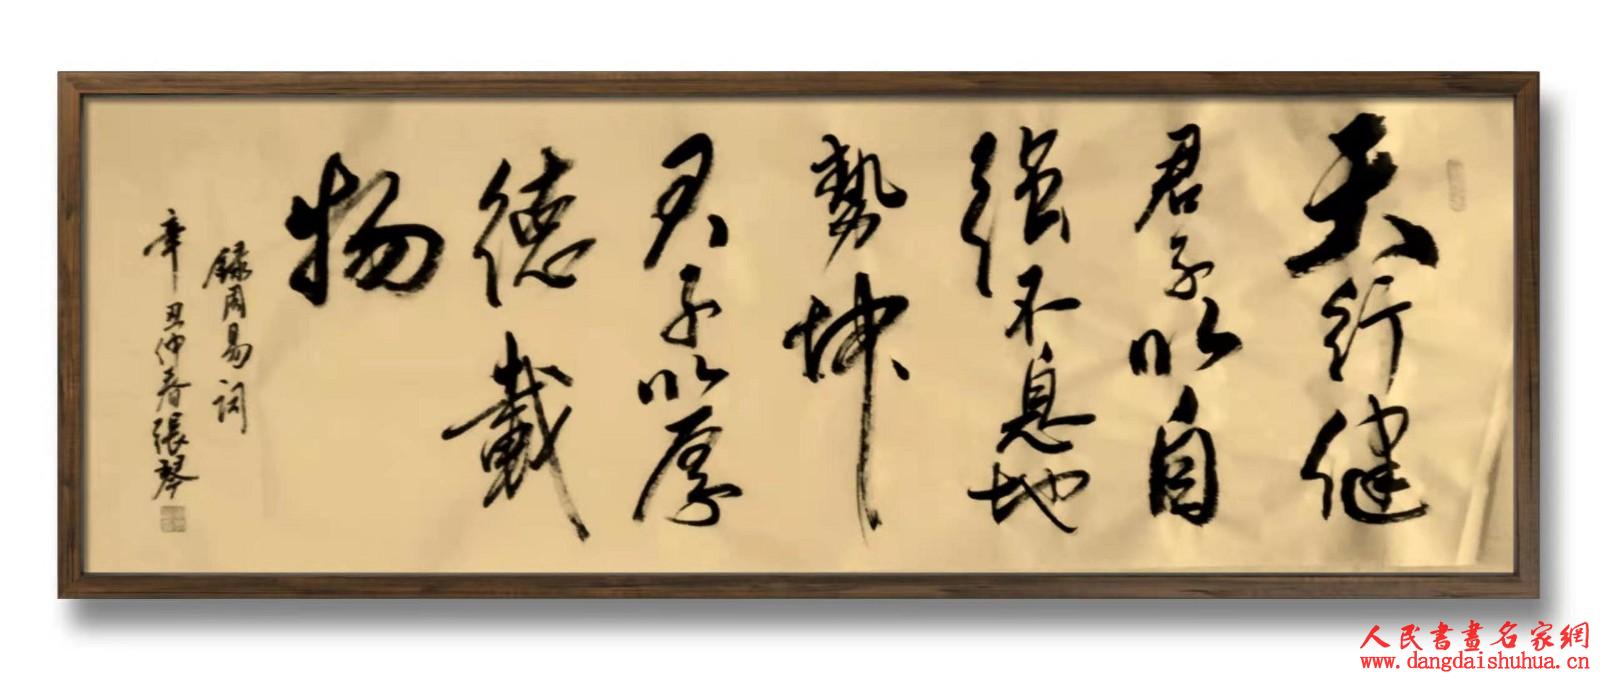 天行健
君子以自
强不息地
勢坤
君子以厚
德載
物
録周易词
辛丑仲春張琴
人民書畫名家網
www.dangdaishuhua.cn